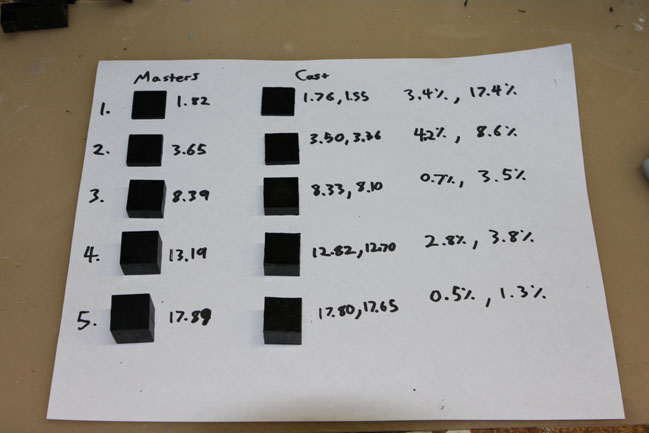 Masters Cast
1. 1.82 1.76, 1.55 3.4%, 17.4%
2. 3.65 3.50, 3.36 4.2%, 8.6%
3. 8.39 8.33, 8.10 0.7%, 3.5%
4. 13.19 12.82, 12.70 2.8%, 3.8%
5. 17.89 17.80, 17.65 0.5%, 1.3%